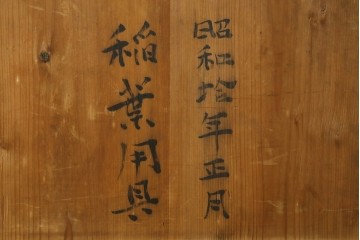 昭和拾年正月
稲葉用具